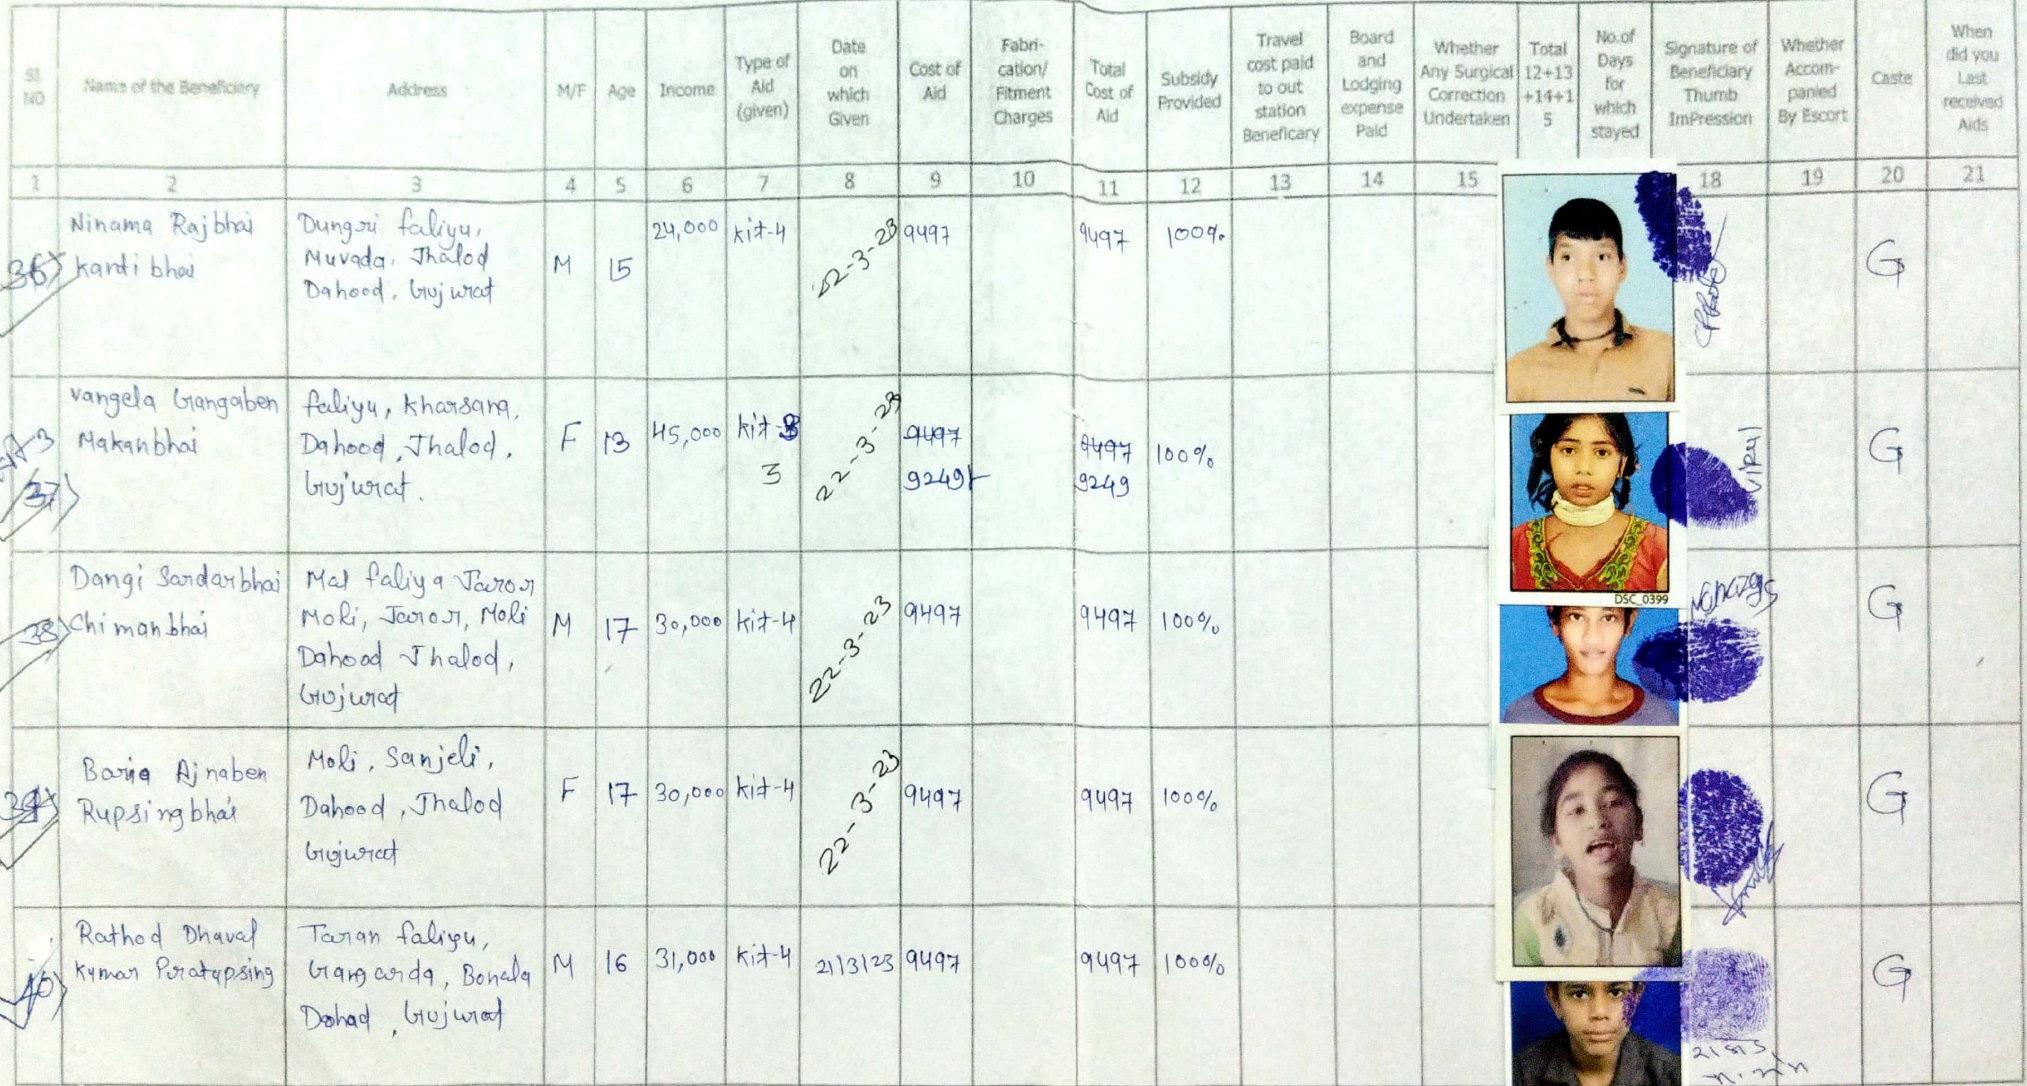 Sl. NO
Name of the Beneficiary
Address
M/F
Age
Income
Type of Aid (given)
Date on which Given
Cost of Aid
Fabri-cation/ Fitment Charges
Total Cost of Aid
Subsidy Provided
Travel cost paid to out station Beneficary
Board and Lodging expense Paid
Whether Any Surgical Correction Undertaken
Total 12+13 +14+1 5
No.of Days for which stayed
Signature of Beneficiary Thumb ImPression
Whether Accom-panied By Escort
Caste
When did you Last received Aids
1 2 3 4 5 6 7 8 9 10 11 12 13 14 15 18 19 20 21
36)
Ninama Rajbhai
Kanti bhai
Dungri faliyu,
Muvada, Jhalod
Dahood, Gujurat
M 15 24,000 kit-4 22-3-23 9497 9497 100% G
37)
Vangela Gangaben
Makanbhai
faliyu, Kharsana,
Dahood, Jhalod,
Gujurat.
F 13 45,000 kit-3 22-3-23 9497 9497 100% G
3 9249 9249
VIRAL
DSC_0399
38)
Dangi Sardarbhai
Chimanbhai
Mal faliya Jaror
Moli, Jaror, Moli
Dahood Jhalod,
Gujurat
M 17 30,000 kit-4 22-3-23 9497 9497 100% G
39)
Baria Ajnaben
Rupsingbhai
Moli, Sanjeli,
Dahood, Jhalod
Gujurat
F 17 30,000 kit-4 22-3-23 9497 9497 100% G
40)
Rathod Dhaval
Kumar Piratapsing
Taran faliyu,
Gangarda, Bonala
Dahad, Gujurat
M 16 31,000 kit-4 21/3/23 9497 9497 100% G